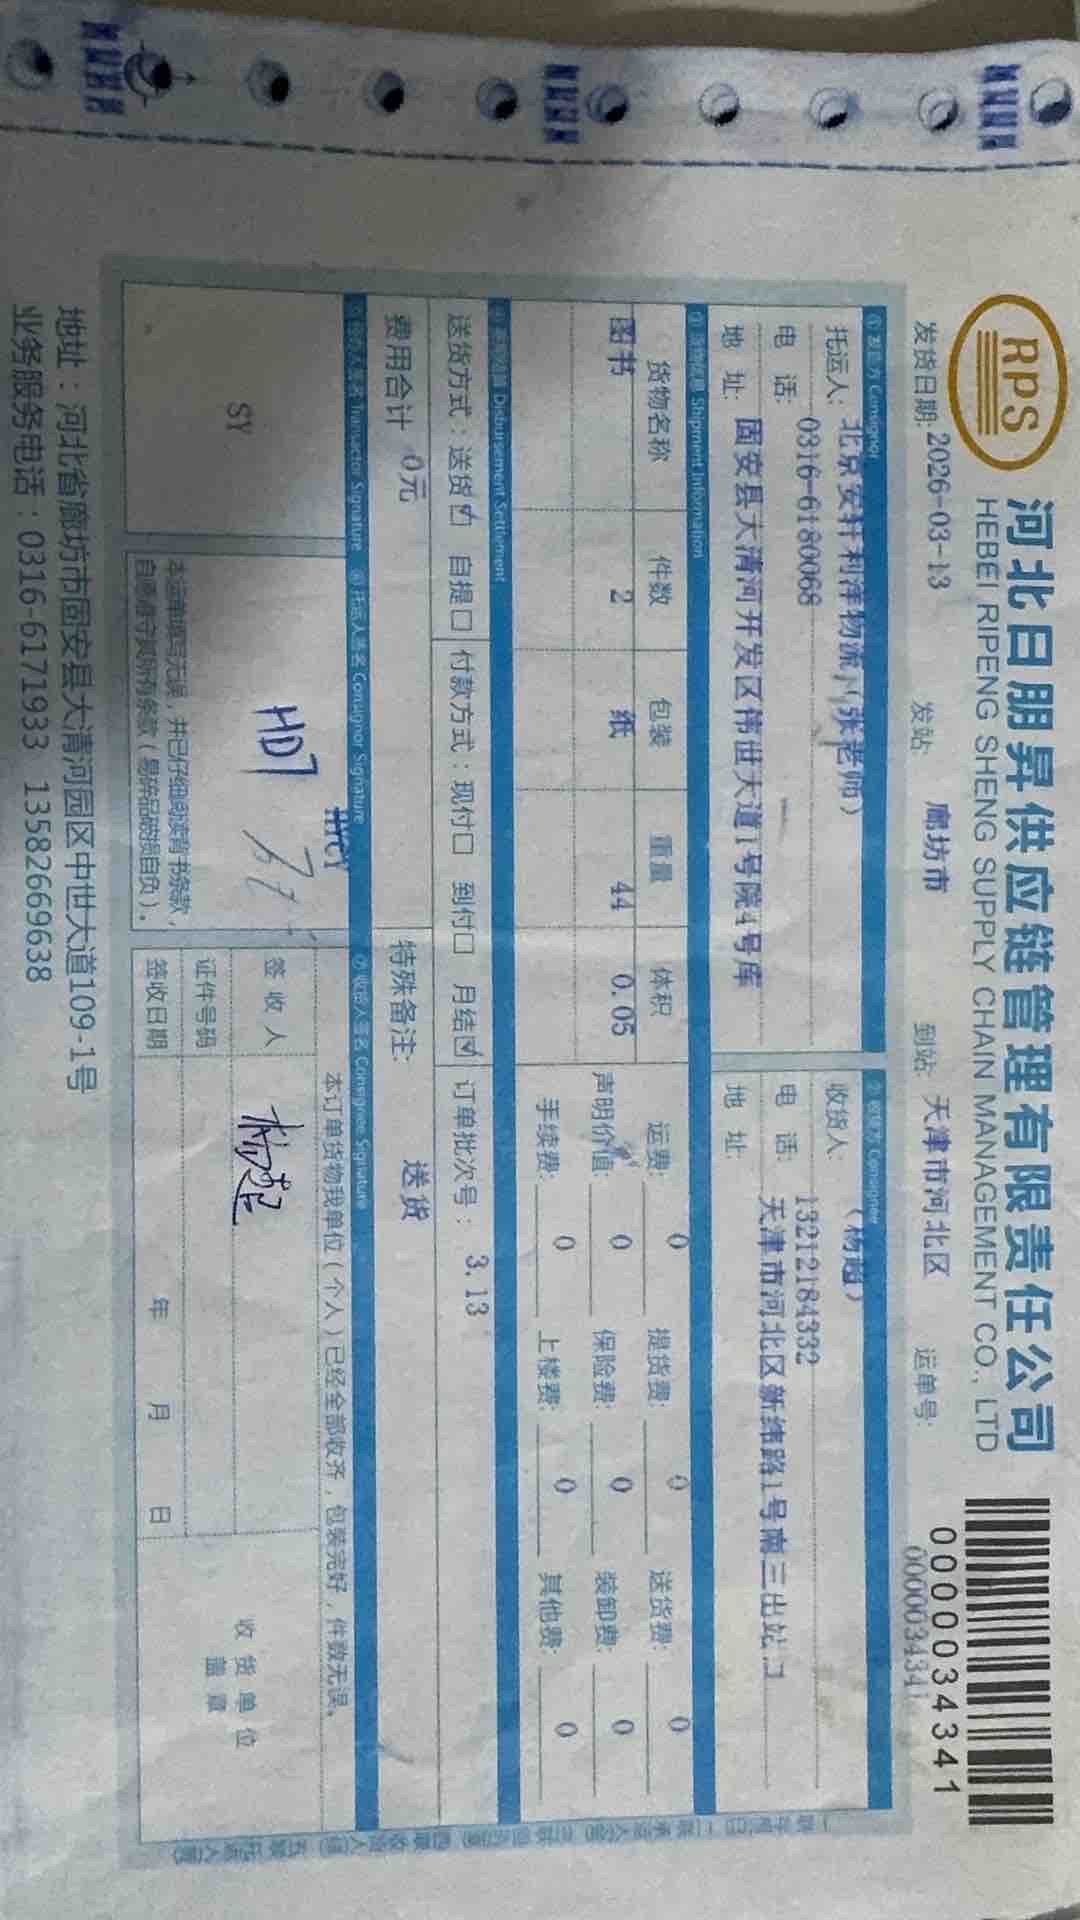 RPS
河北日朋昇供应链管理有限责任公司
HEBEI RIPENG SHENG SUPPLY CHAIN MANAGEMENT CO., LTD
0000034341
0000034341
发货日期: 2026-03-13 发站: 廊坊市 到站: 天津市河北区 运单号:
①发货方 Consignor ②收货方 Consignee
托运人: 北京安轩利泽物流 (张老师) 收货人: (杨超)
电 话: 0316-6180068 电 话: 13212184332
地 址: 固安县大清河开发区伟世大道1号院4号库 地 址: 天津市河北区新纬路1号南三出站口
③货物信息 Shipment Information
货物名称 件数 包装 重量 体积 运费: 0 提货费: 0 送货费: 0
图书 2 纸 44 0.05 声明价值: 0 保险费: 0 装卸费: 0
手续费: 0 上楼费: 0 其他费: 0
Disbursement Settlement
送货方式：送货☑ 自提☐ 付款方式：现付☐ 到付☐ 月结☑ 订单批次号： 3.13
费用合计 0元 特殊备注: 送货
Transactor Signature ⑥托运人签名 Consignor Signature ⑦收货人签名 Consignee Signature
本订单货物我单位（个人）已经全部收齐，包装完好，件数无误。
SY HD7 签收人 杨超 收货单位
盖章
证件号码
本运单填写无误，并已仔细阅读背书条款，
自愿遵守其所有条款（易碎品破损自负）。
签收日期 年 月 日
地址：河北省廊坊市固安县大清河园区中世大道109-1号
业务服务电话：0316-6171933 13582669638